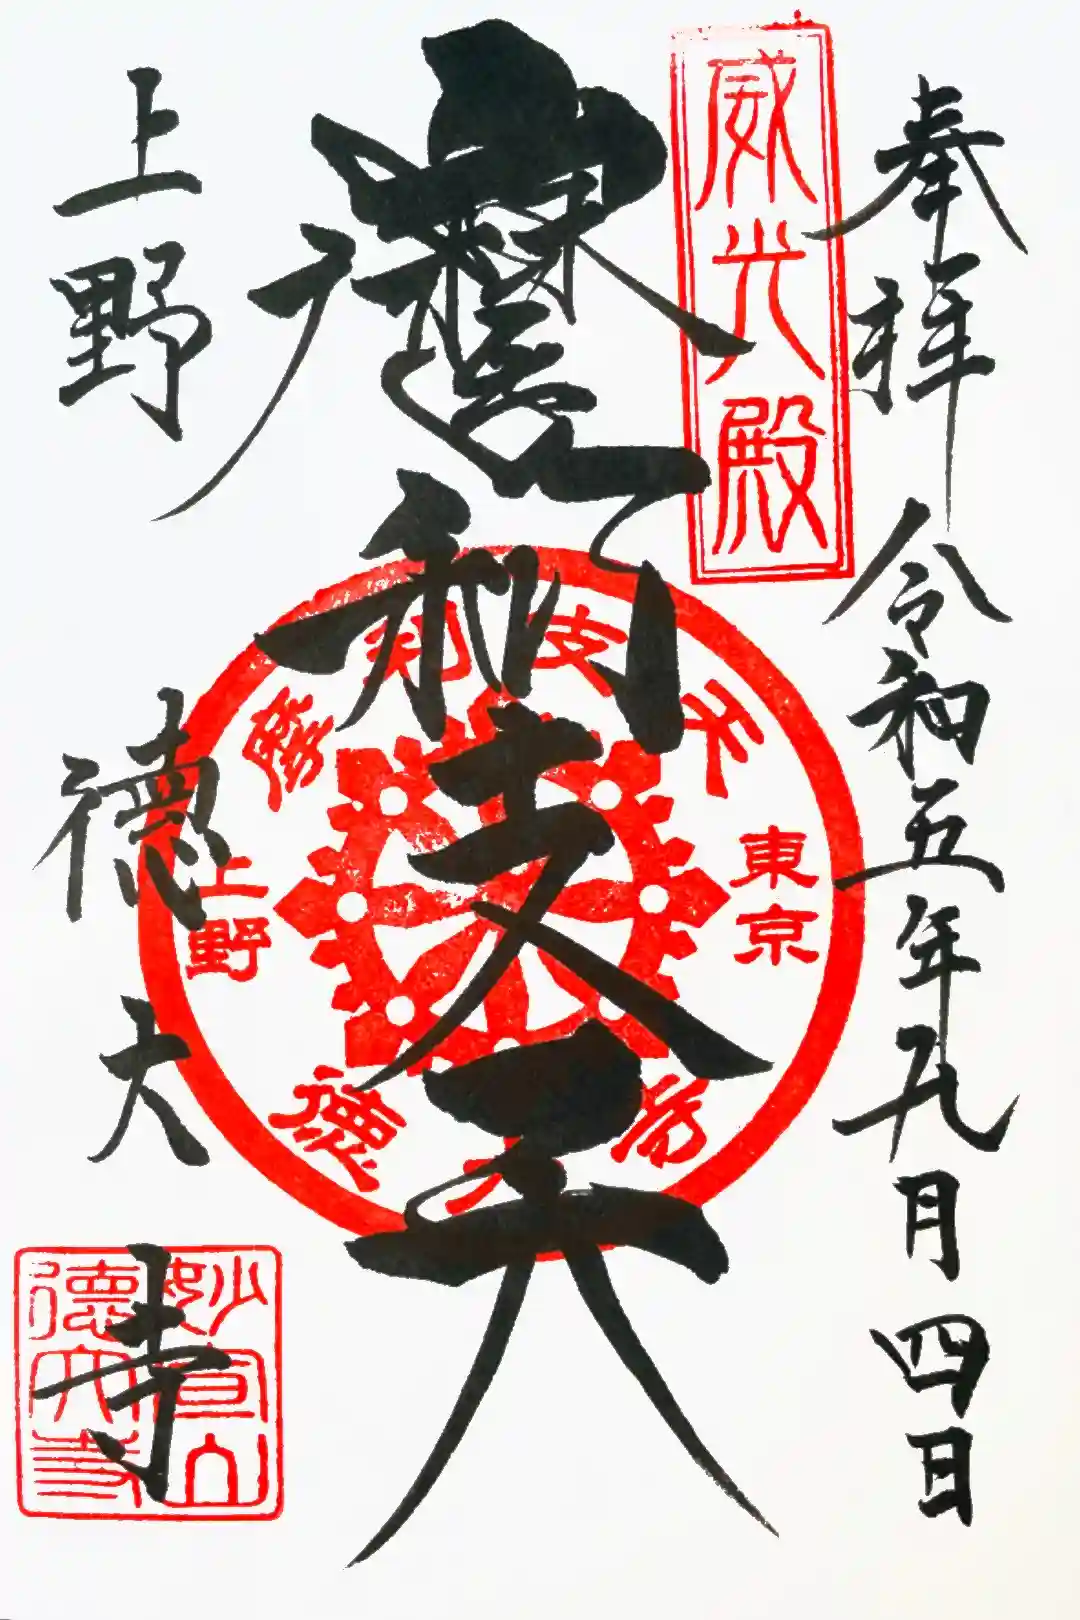 奉拝 令和五年九月四日
威光殿
摩利支天
上野 徳大寺
摩利支天
東京
上野
徳大寺
妙宣山
徳大寺